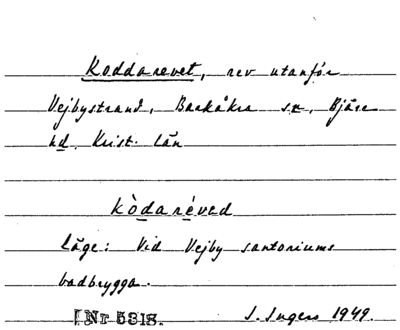 Koddarevet, rev utanför
Vejbystrand, Barkåkra sn, Bjäre
hd. Krist. län
kòdaréved
läge: Vid Vejby santoriums
badbrygga.
[Nr 5318. I. Ingers 1949.